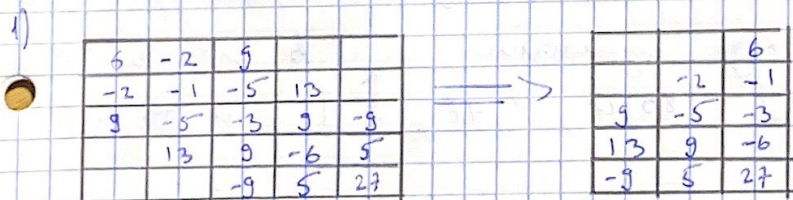 1)
6 -2 9
-2 -1 -5 13
9 -5 -3 9 -9
13 9 -6 5
-9 5 27
=>
6
-2 -1
9 -5 -3
13 9 -6
-9 5 27